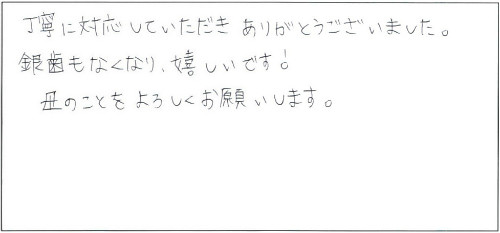 丁寧に対応していただきありがとうございました。
銀歯もなくなり、嬉しいです!
のことをよろしくお願いします。